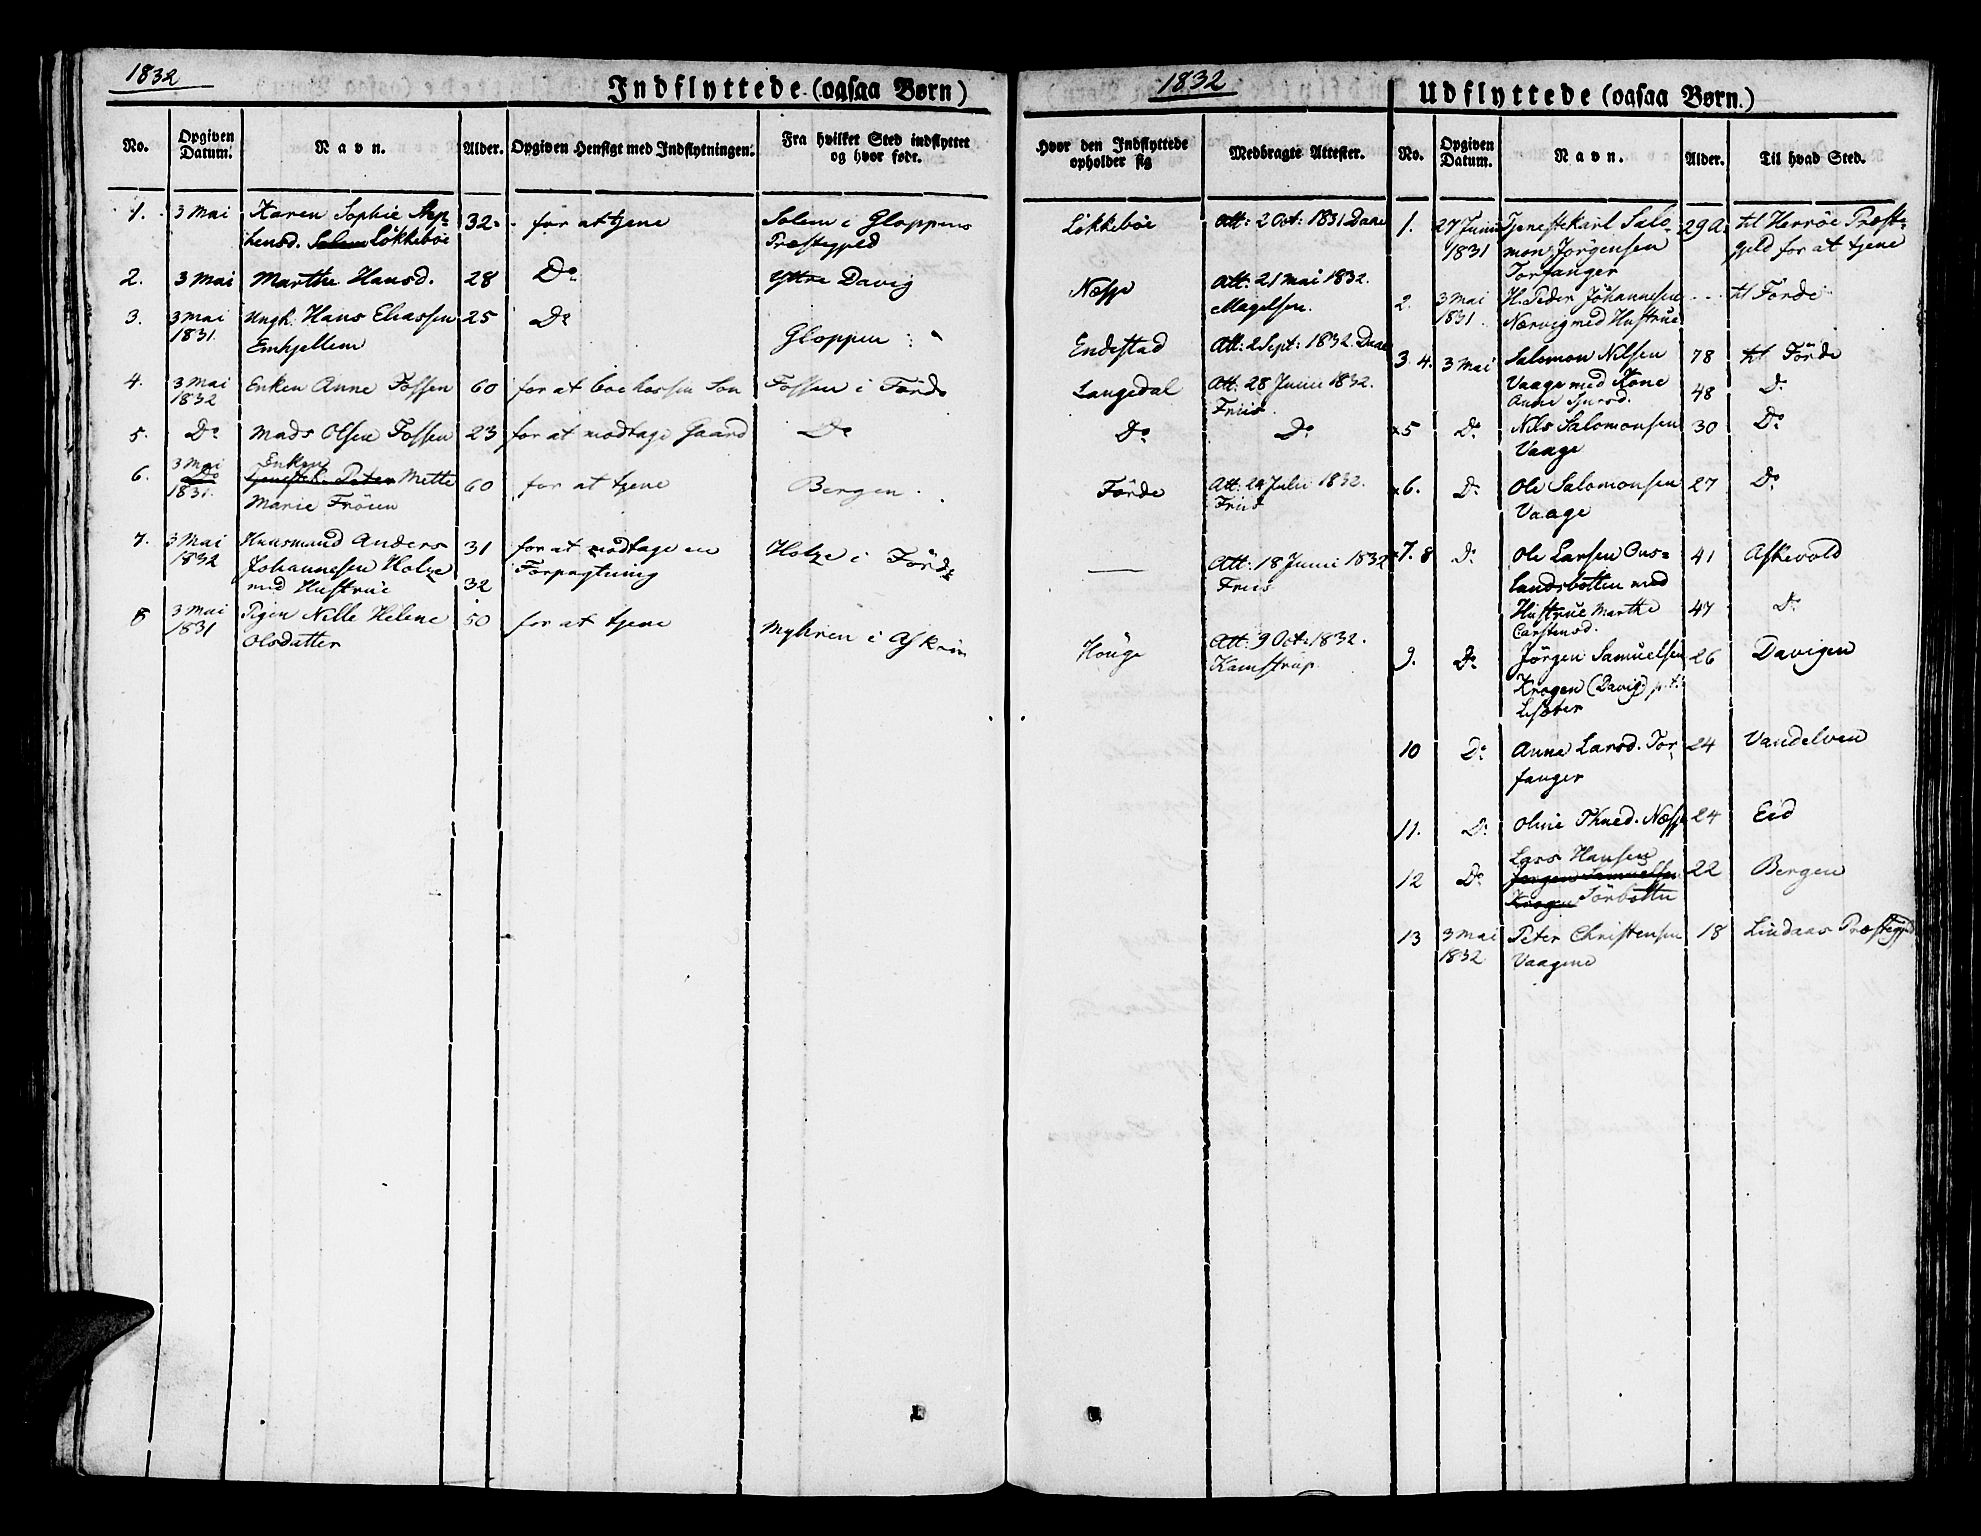 1832
Indflyttede (ogsaa Børn)
No. Opgiven Datum. Navn. Alder. Opgiven Hensigt med Indflytningen. Fra hvilket Sted indflyttet og hvor født.
1. 3 Mai Karen Sophie Step- 32 for at tjene Solem i Gloppens
hensd. Solem Lökkeböe Præstegjeld
2. 3 Mai Marthe Hansd. 28 Do Yttre Davig
3. 3 Mai Ungk. Hans Eliassen 25 Do Gloppen
1831. Emhjellem
4. 3 Mai Enken Anne Fossen 60 for at boe hos sin Son Fossen i Förde
1832
5. Do Mads Olsen Fossen 23 for at modtage Gaard Do
6. 3 Mai Enken
Do Tjenestek. Peter Mette 60 for at tjene Bergen
1831. Marie Fröien
7. 3 Mai Huusmand Anders 31 for at modtage en Holze i Förde
1832 Johannesen Holze Forpagtning
med Hustrue 32
8 3 Mai Pigen Nille Helene 50 for at tjene Myhren i Askvin
1831 Olsdatter
1832
Hvor den Indflyttede opholder sig Medbragte Attester.
Lökkeböe Att: 2 Oct: 1831 Daae
Næsje Att: 21 Mai 1832.
Magelsen.
Endestad Att: 2 Sept: 1832 Daae
Langedal Att: 28 Junii 1832.
Friis.
Do Do
Förde Att: 20 Julii 1832.
Friis
— Att: 18 Junii 1832
Friis
Houge Att: 9 Oct: 1832.
Kamstrup.
Udflyttede (ogsaa Børn.)
No. Opgiven Datum. Navn. Alder. Til hvad Sted.
1. 27 Junii Tjenestekarl Salo- 29 A. til Herröe Præste-
1831 mon Jörgensen gjeld for at tjene
Torfanger
2. 3 Mai H. Peder Johannesen - - - til Förde
1831. Nærvig med Hustrue
3. 4. 3 Mai Salomon Nilsen 78 til Förde
Vaage med Kone 48 Do
Anne Sjursd.
x5 Do Nils Salomonsen 30 Do
Vaage
x6. Do Ole Salomonsen 27 Do
Vaage
7. 8 Do Ole Larsen Ous- 41 Askevold
landsbotten med
Hustrue Marthe 47 Do
Carstensd.
9. Do Jörgen Samuelsen 26 Davigen
Krogen (Davig) p.t.
Lisæter
10 Do Anna Larsd. Tor- 24 Vandelven
fanger
11. Do Oline Thued. Næsje 24 Eid
Lars Hansen
12 Do Jörgen Samuelsen 22 Bergen
Krogen Sörbotten
13 3 Mai Peter Christensen 18 Lindaas Præstegjeld
1832 Vaagene